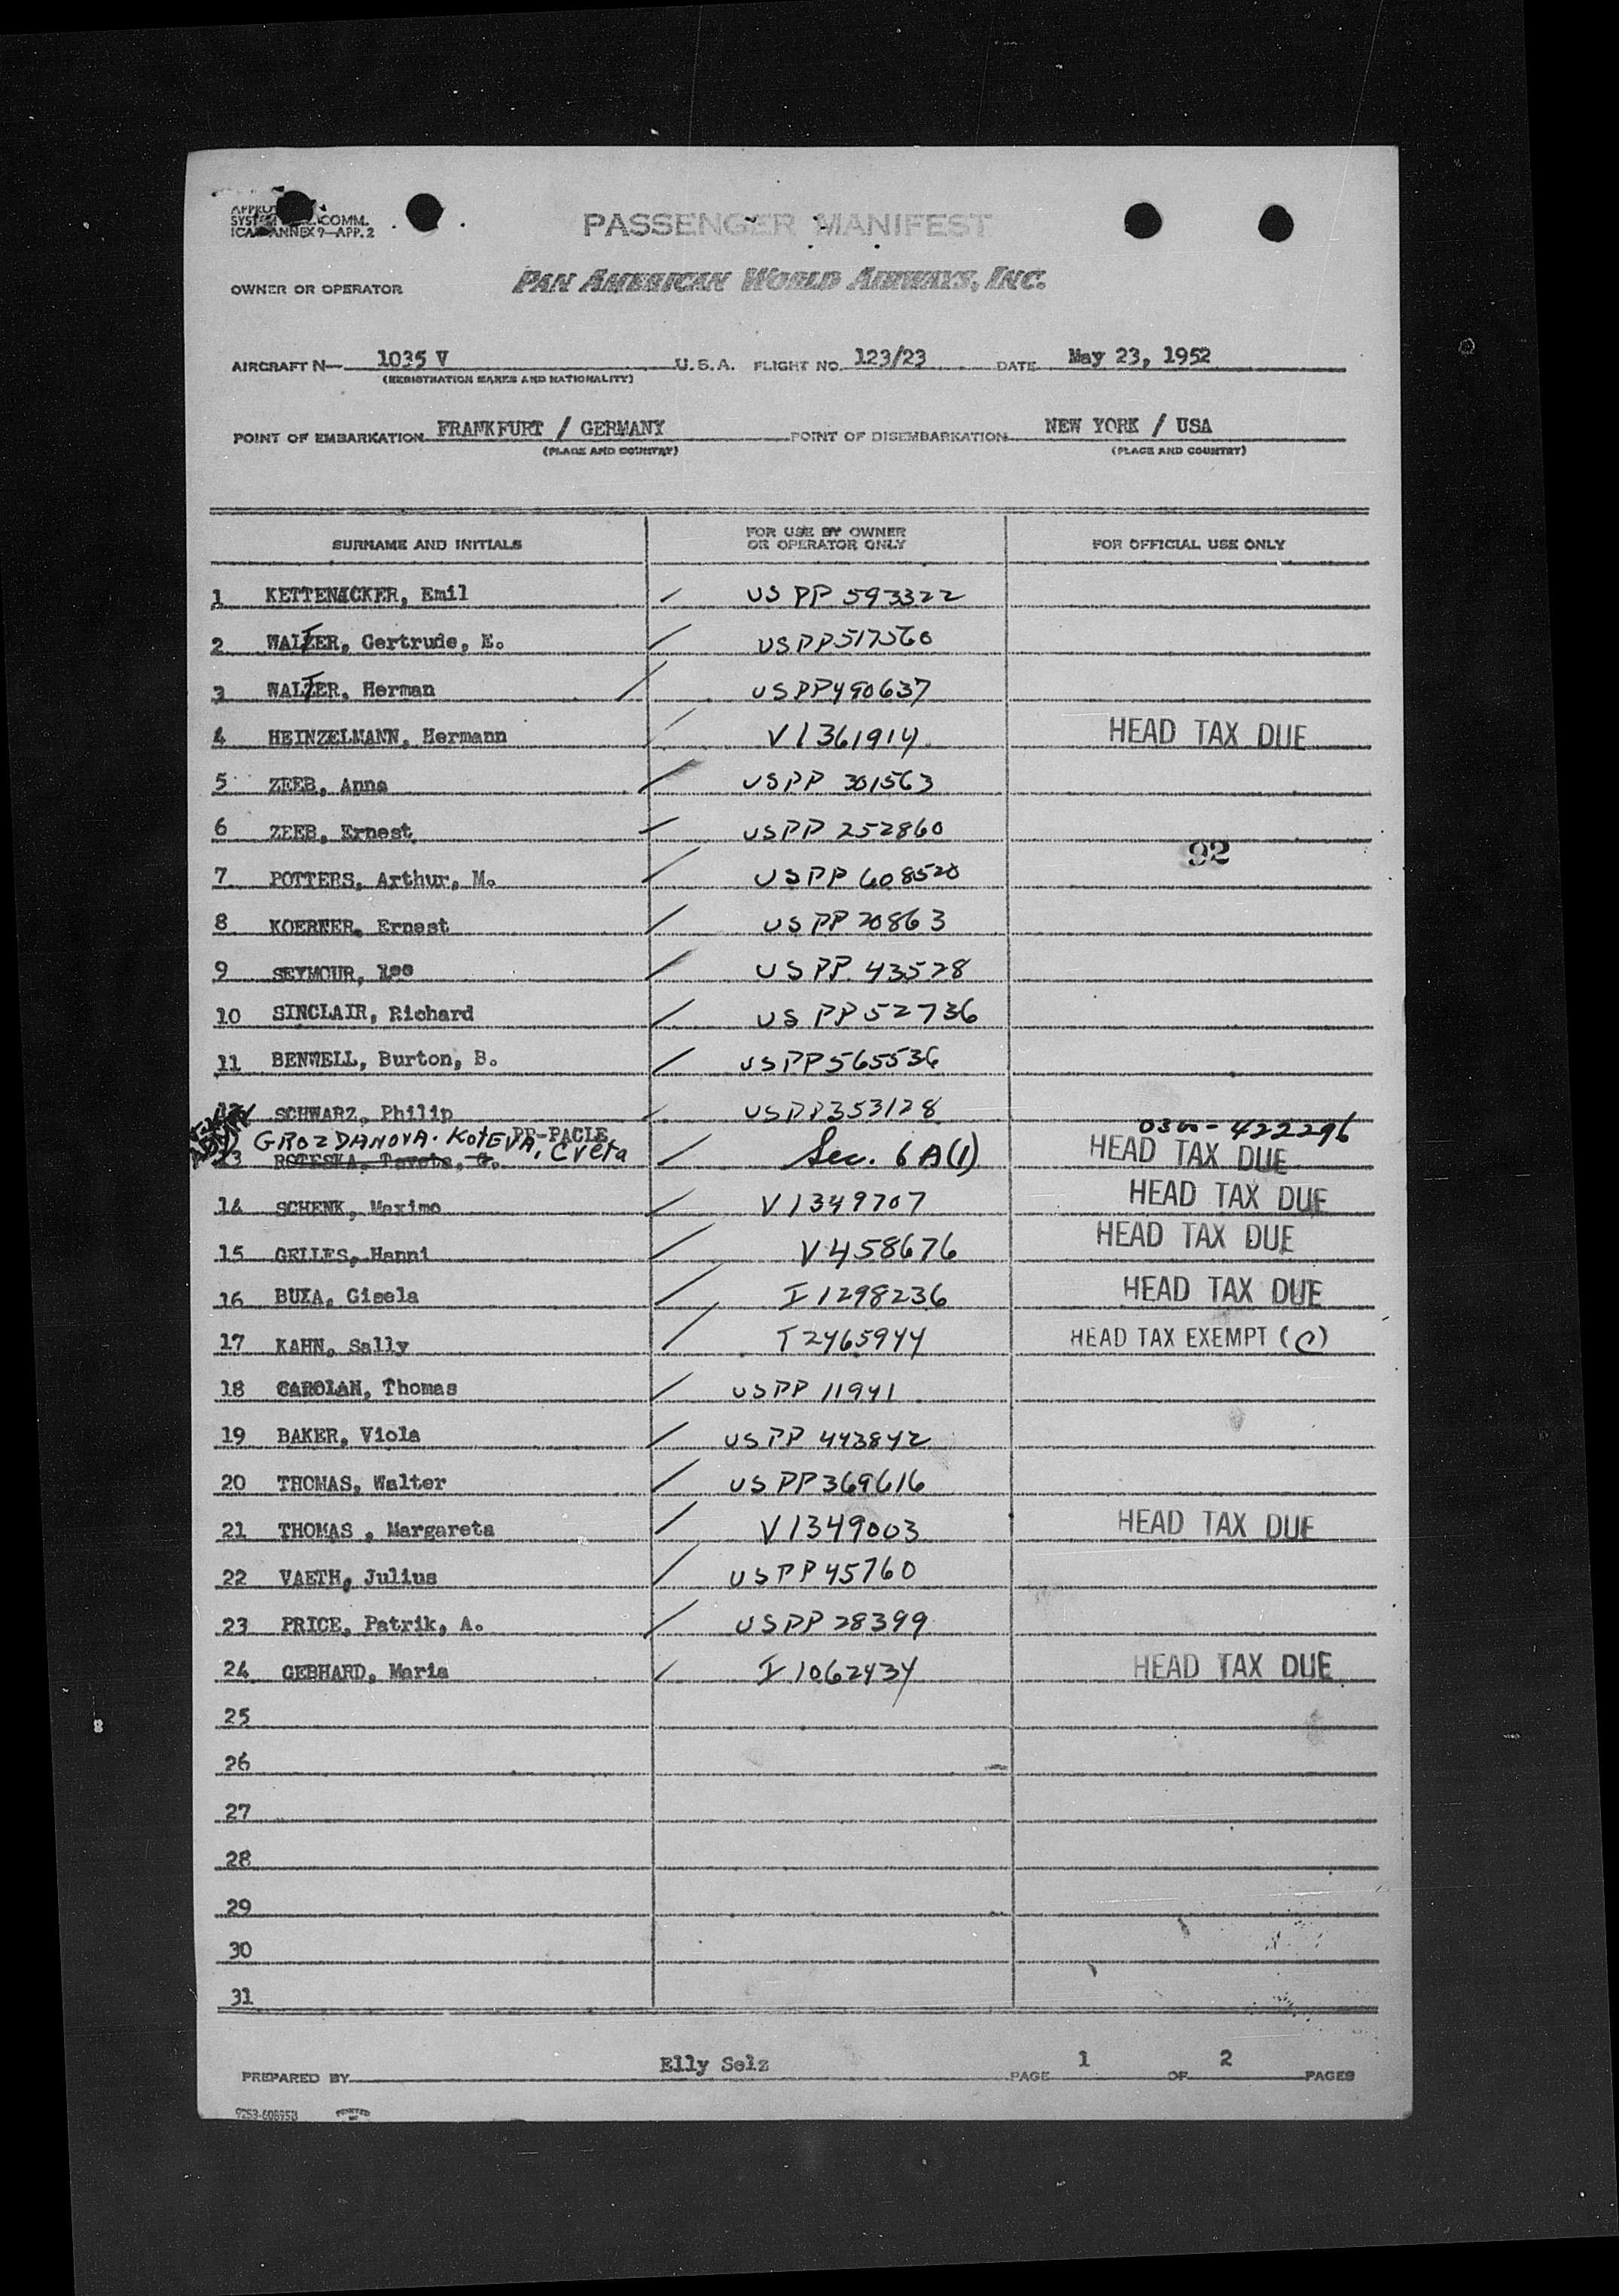 SYSTEM COMM.
ICAO ANNEX 9—APP. 2
PASSENGER MANIFEST
OWNER OR OPERATOR PAN AMERICAN WORLD AIRWAYS, INC.
AIRCRAFT N— 1035 V U.S.A. FLIGHT NO. 123/23 DATE May 23, 1952
(REGISTRATION MARKS AND NATIONALITY)
POINT OF EMBARKATION FRANKFURT / GERMANY POINT OF DISEMBARKATION NEW YORK / USA
(PLACE AND COUNTRY) (PLACE AND COUNTRY)
SURNAME AND INITIALS FOR USE BY OWNER OR OPERATOR ONLY FOR OFFICIAL USE ONLY
1 KETTENACKER, Emil / US PP 593322
2 WALTER, Gertrude, E. / US PP 517560
3 WALTER, Herman / US PP 490637
4 HEINZELMANN, Hermann / V 1361914 HEAD TAX DUE
5 ZEEB, Anna / US PP 301563
6 ZEEB, Ernest / US PP 252860
92
7 POTTERS, Arthur, M. / US PP 608520
8 KOERNER, Ernest / US PP 20863
9 SEYMOUR, Leo / US PP 43528
10 SINCLAIR, Richard / US PP 52736
11 BENWELL, Burton, B. / US PP 565536
12 SCHWARZ, Philip / US PP 353128
422296
GROZDANOVA-KOTEVA, Cveta DP-PACLE
13 ROTESKA, Tsveta, G. / Sec. 6A(1) HEAD TAX DUE
14 SCHENK, Maximo / V 1349707 HEAD TAX DUE
15 GELLES, Hanni / V 458676 HEAD TAX DUE
16 BUXA, Gisela / I 1298236 HEAD TAX DUE
17 KAHN, Sally / T 2465944 HEAD TAX EXEMPT (C)
18 CAROLAN, Thomas / US PP 11941
19 BAKER, Viola / US PP 443842
20 THOMAS, Walter / US PP 369616
21 THOMAS , Margareta / V 1349003 HEAD TAX DUE
22 VAETH, Julius / US PP 45760
23 PRICE, Patrik, A. / US PP 28399
24 GEBHARD, Maria / I 1062434 HEAD TAX DUE
25
26
27
28
29
30
31
PREPARED BY Elly Selz PAGE 1 OF 2 PAGES
PRINTED